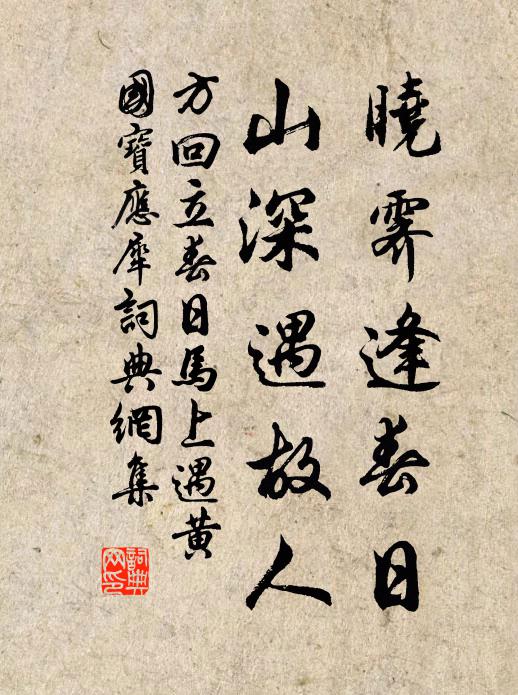 曉霽逢春日
山深遇故人
方回立春日馬上遇黃
國寶應犀詞典網集
詞典网印